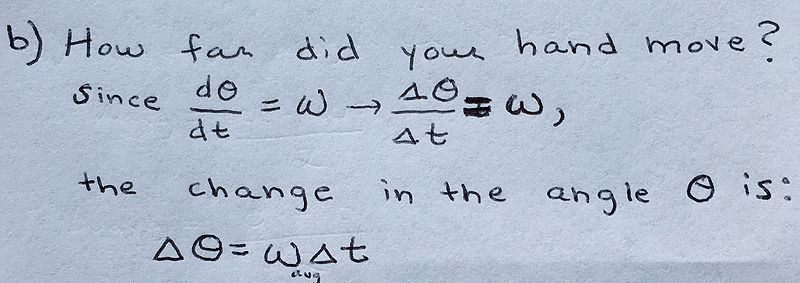 b) How far did your hand move?
Since dθ/dt = ω → Δθ/Δt = ω,
the change in the angle θ is:
Δθ = ω_avg Δt